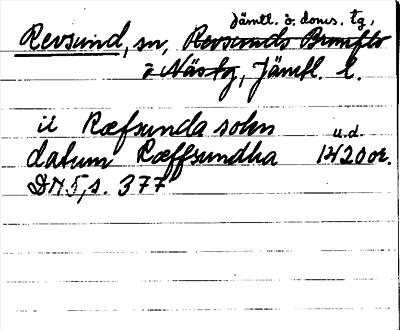 Jämtl. ö. doms. tg,
Revsund, sn, Revsunds Brunflo
o Näs tg, Jämtl. l.
ii Ræfsunda sokn u.d.
datum Ræffsundha 1420 or.
DN 5, s. 377